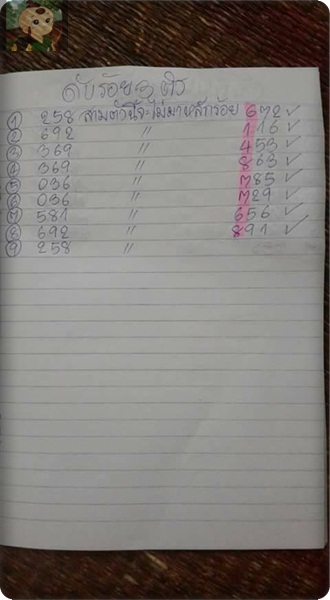 ดับร้อย 3 ตัว
① 258 สามตัวนี้จะไม่มาหลักร้อย 672 ✓
② 692 〃 116 ✓
③ 369 〃 453 ✓
④ 369 〃 863 ✓
⑤ 036 〃 785 ✓
⑥ 036 〃 729 ✓
⑦ 581 〃 656 ✓
⑧ 692 〃 891 ✓
⑨ 258 〃